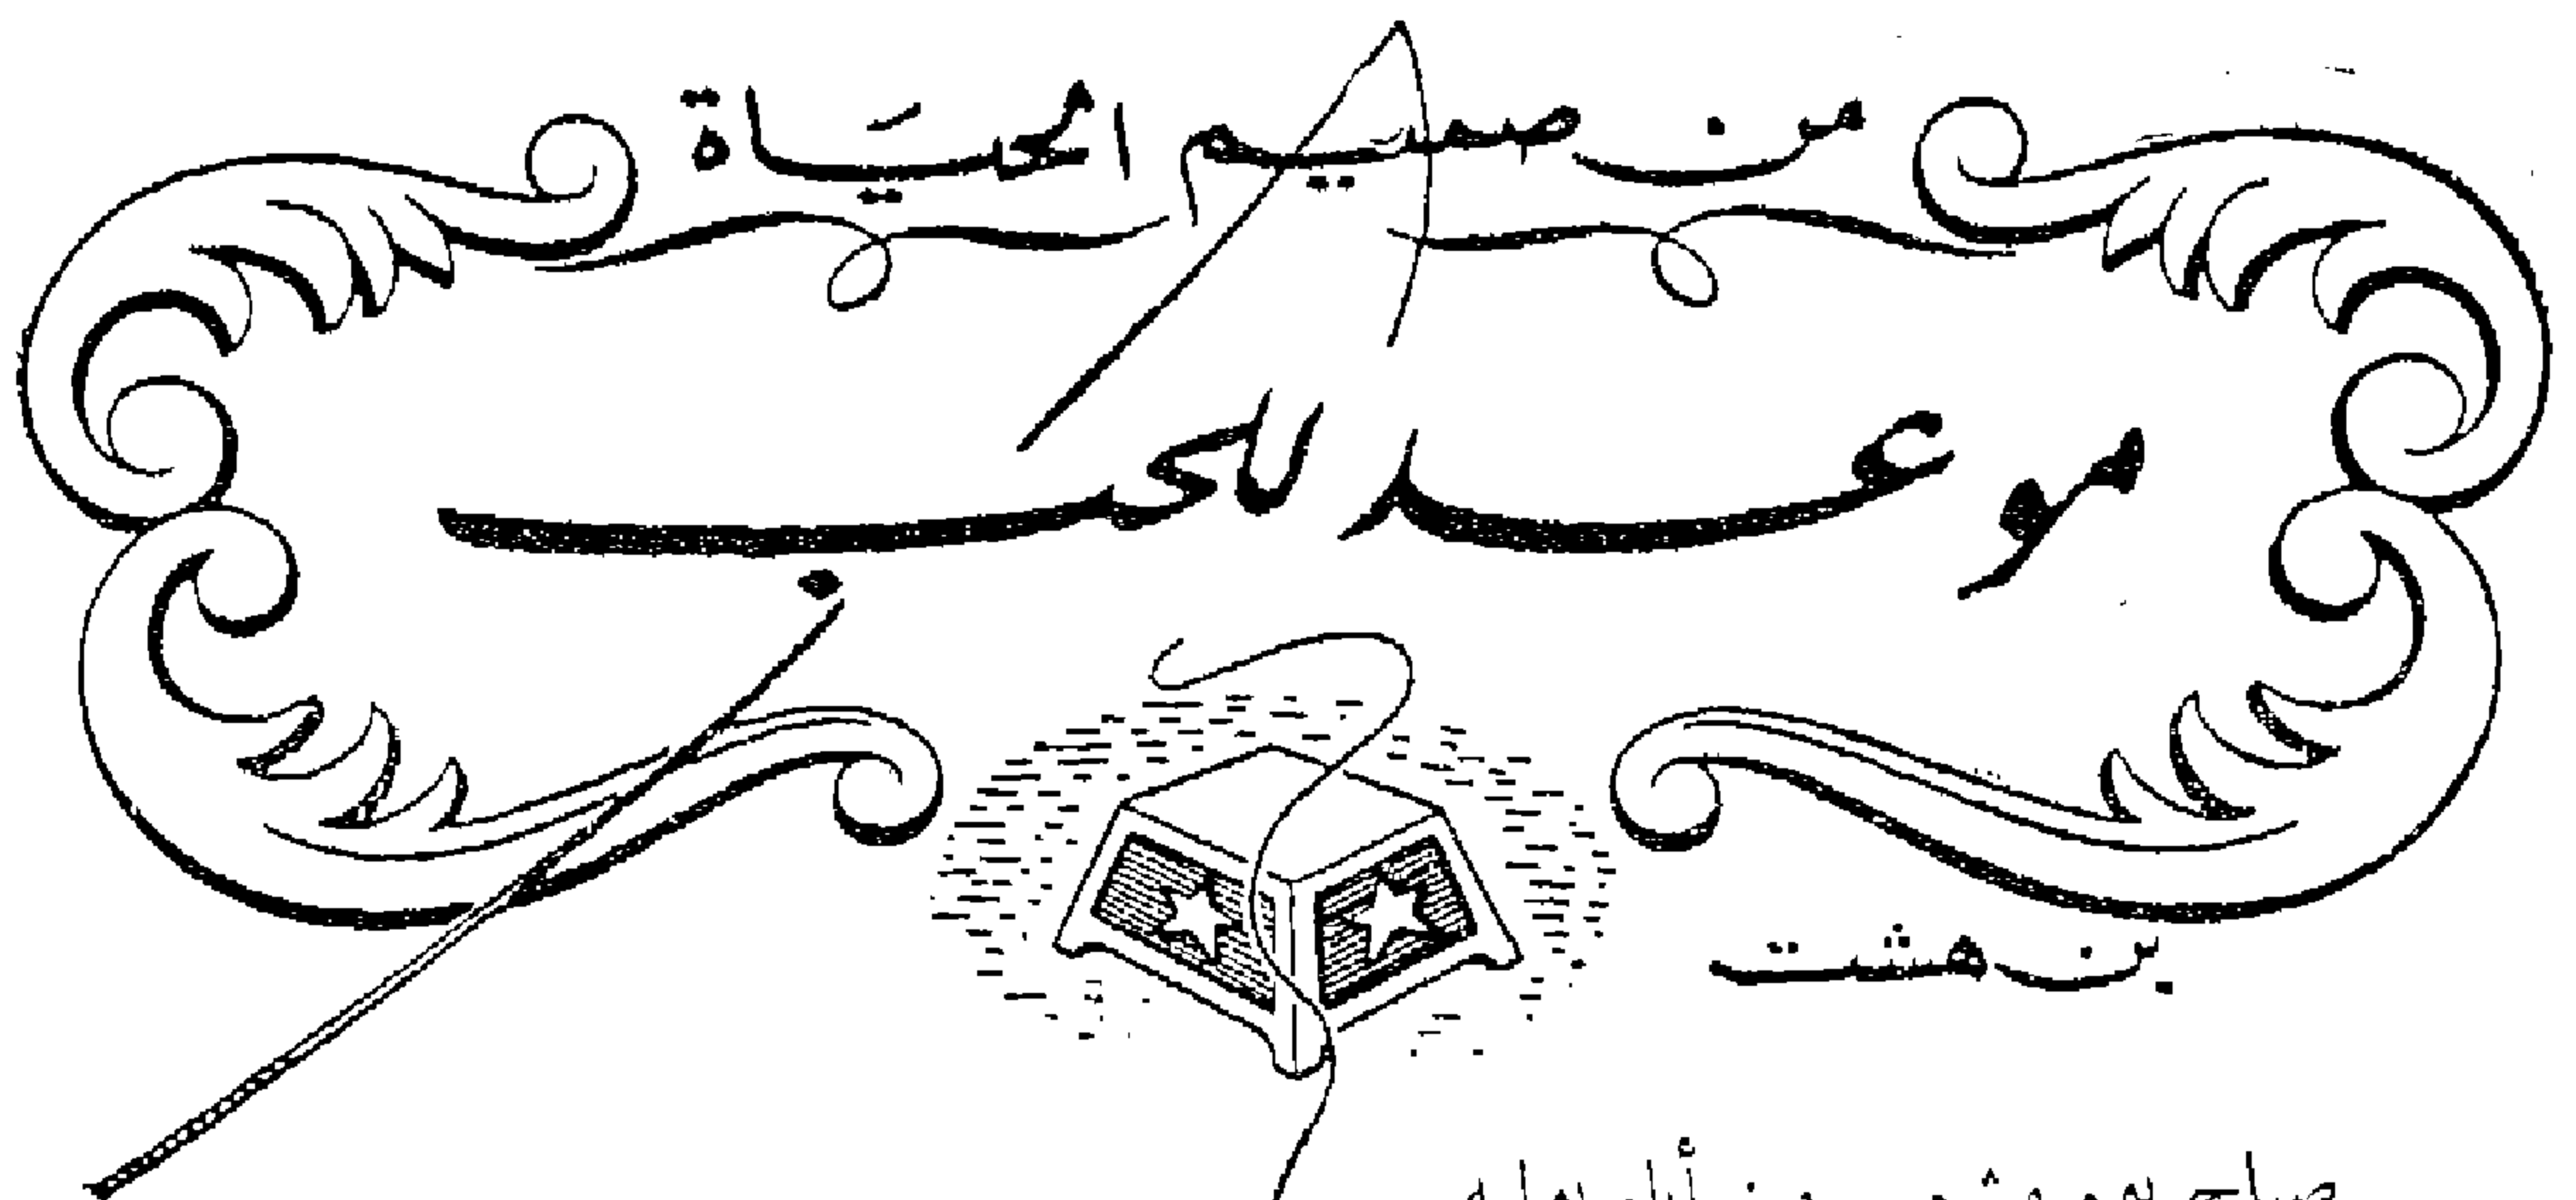 من صميم الحياة
موعد للحب
بن هشت
صباح يوم من أيام